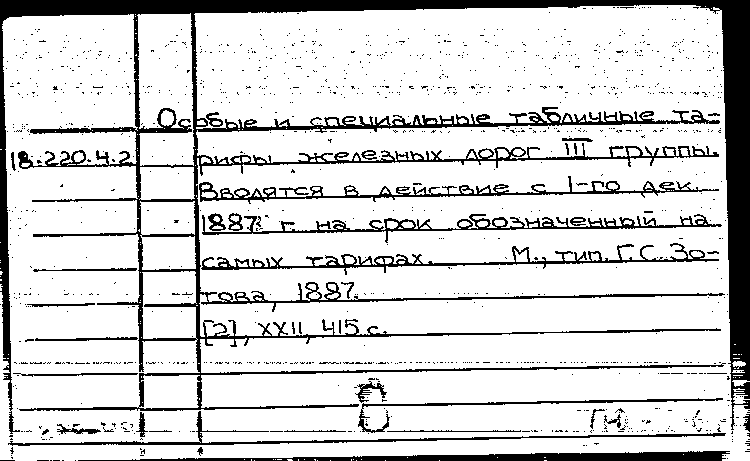 Особые и специальные табличные та-
18.220.4.2 рифы железных дорог III группы.
Вводятся в действие с 1-го дек.
1887 г. на срок обозначенный на
самых тарифах. М., тип. Г.С. Зо-
това, 1887.
[2], XXII, 415 с.